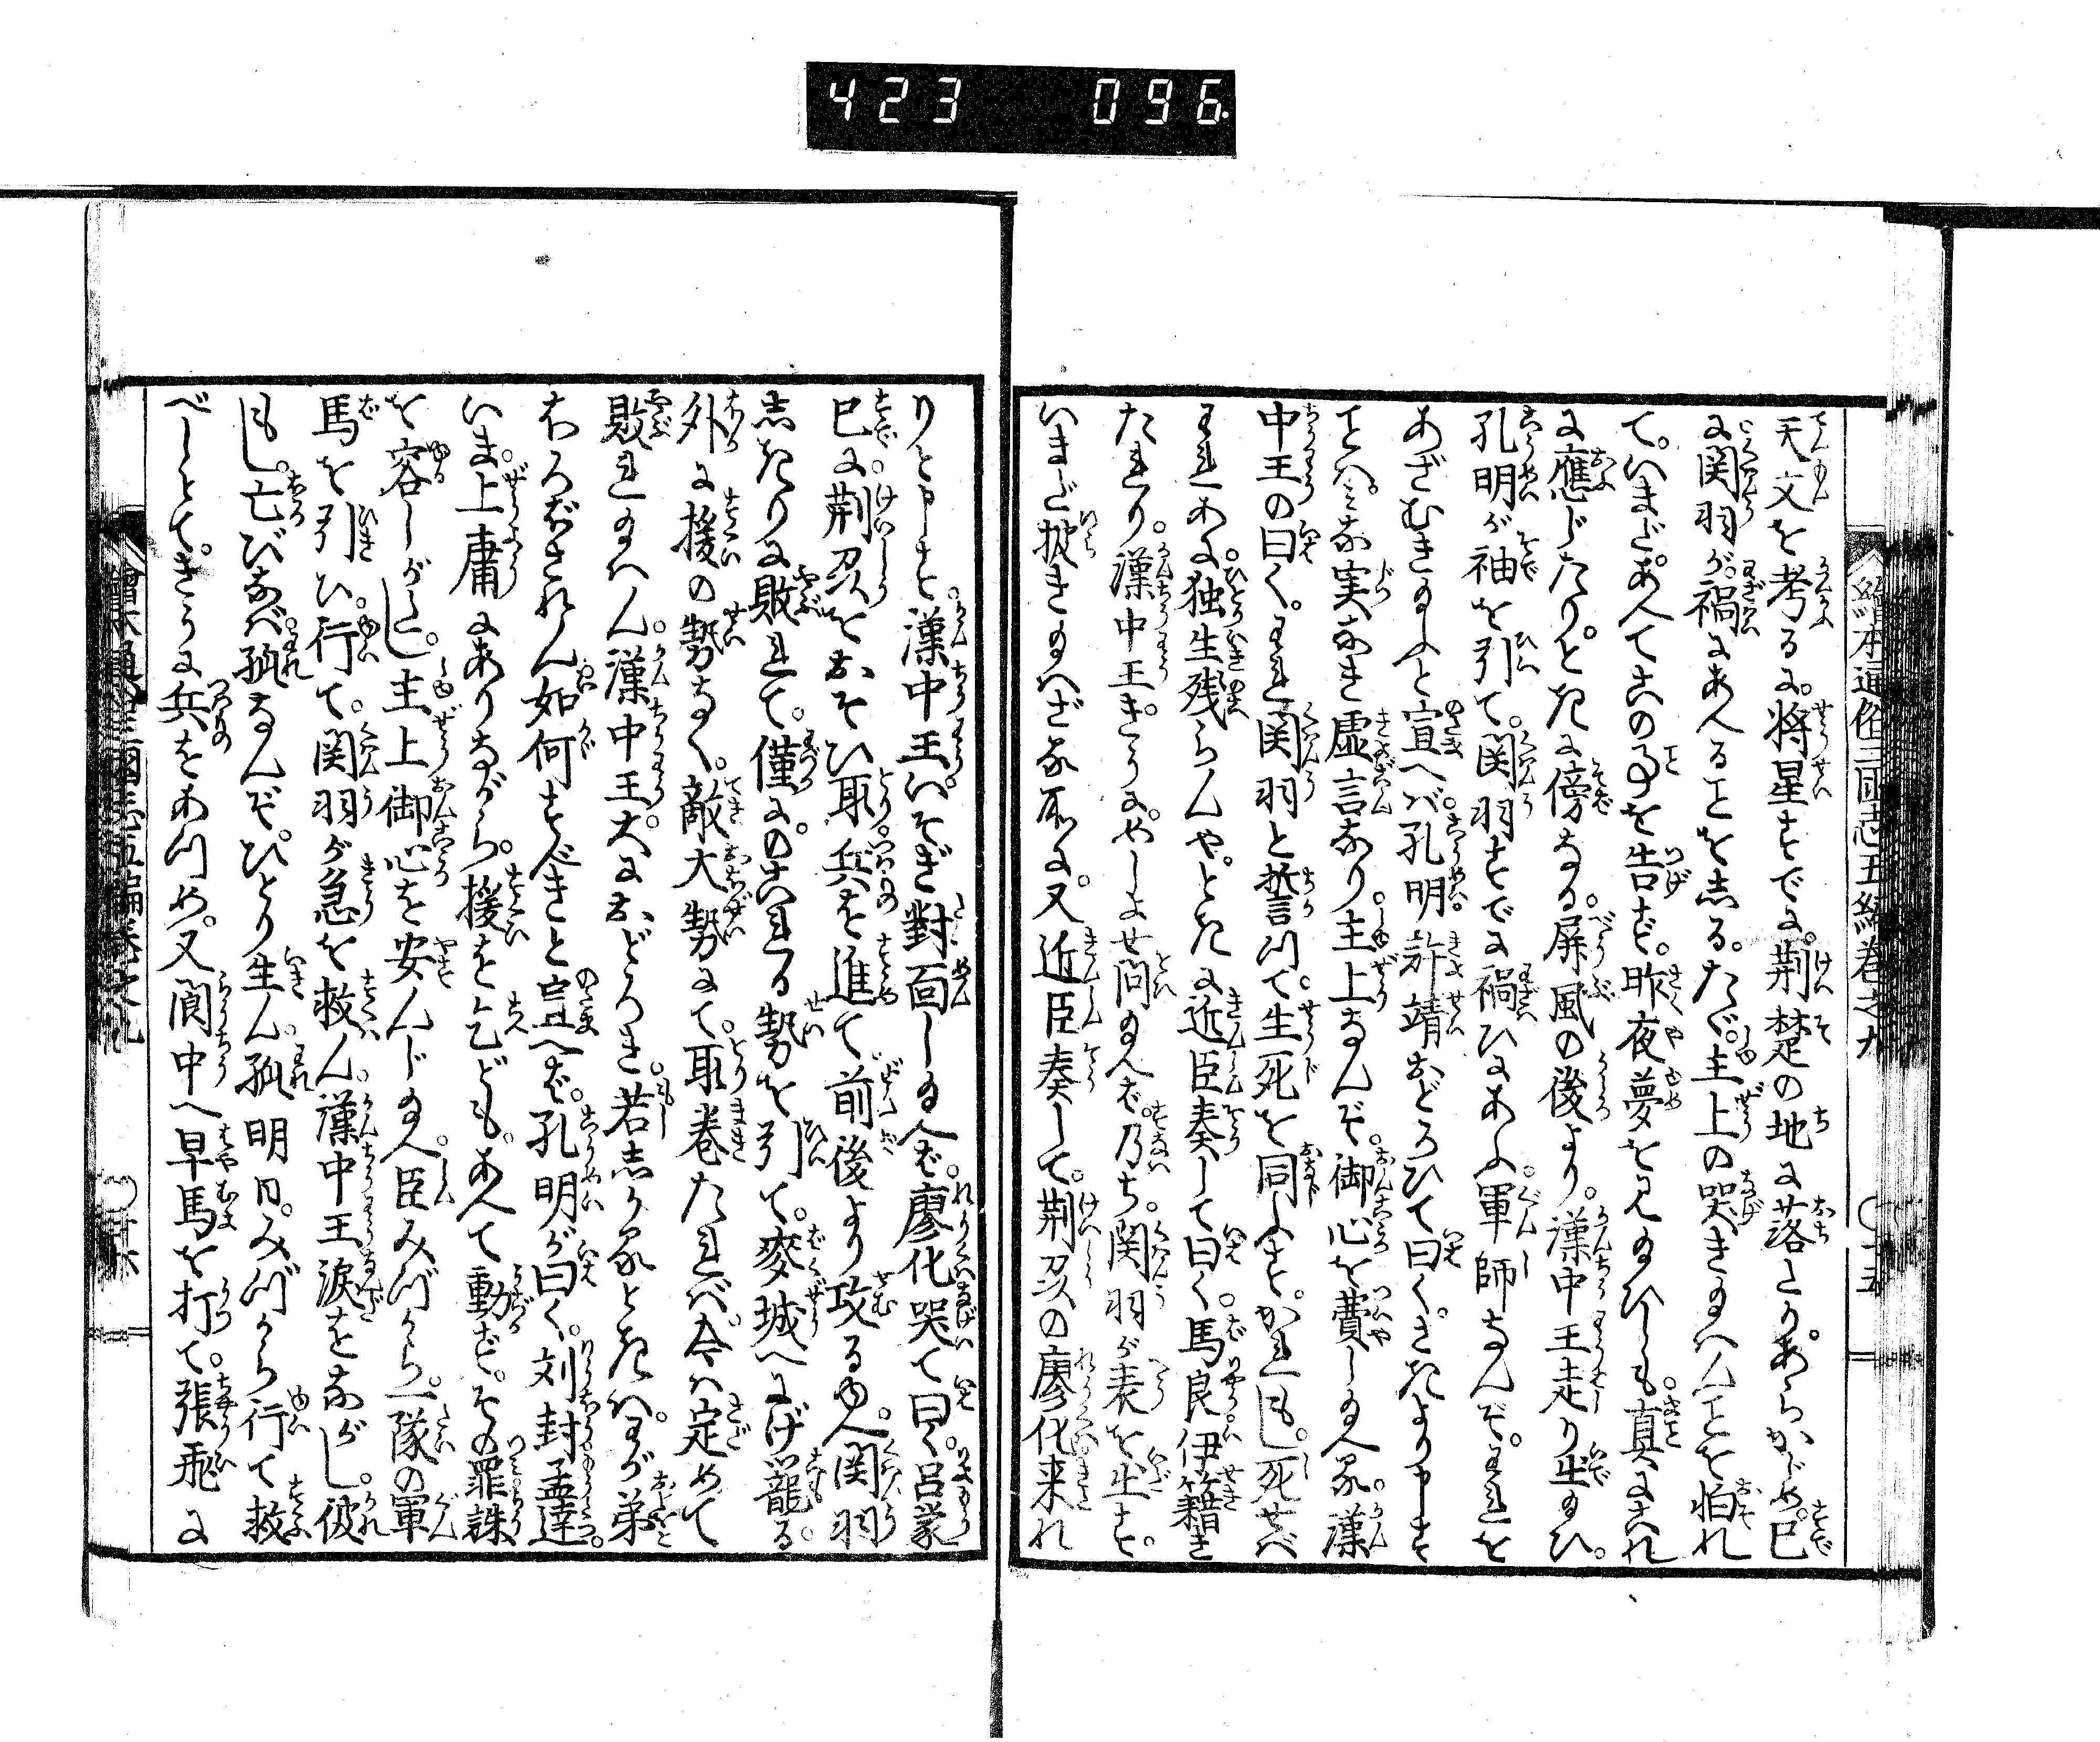 423 096
繪本通俗三國志五編巻之九 〇十五
天文を考るに。将星すでに。荆楚の地に落たり。あらかじめ。已
に関羽が。禍にあへることをしる。たゞ。主上の哭き玉へんことを怕れ
て。いまだ。あへてこの事を告ず。昨夜夢を見玉ひしも。真にこれ
に應じたり。とたに傍なる。屏風の後より。漢中王走り出玉ひ。
孔明が袖を引て。関羽すでに禍ひにあふ。軍師なんぞ。われを
あざむき玉ふと宣へば。孔明。許靖おどろひて曰く。さたより申す
ことハ。みな実なき虚言なり。主上なんぞ。御心を費し玉へる。漢
中王の曰く。われ関羽と誓つて。生死を同ふす。かれもし。死せば
われあに。独生残らんや。とたに近臣奏して曰く。馬良伊籍き
たれり。漢中王。きうに。めしよせ問玉へば。乃ち。関羽が表を出す。
いまだ披き玉へざる所に。又近臣奏して。荆州の廖化来れ
りと申す。漢中王。いそぎ對面し玉へば。廖化哭て曰く。呂蒙
已に。荆州をおそひ取。兵を進て前後より攻るゆへ。関羽
しきりに敗れて。僅に。のこれる勢を引て。麥城へにげ籠る。
外に援の勢なく。敵大勢にて。取巻たれば。今ハ定めて
敗れ玉へん。漢中王。大におどろき。若しかるときハ。わが弟
ほろぼされん如何すべきと宣へば。孔明が曰く。刘封孟達。
いま。上庸にありながら。援を乞ども。あへて動ず。その罪誅
を容しがたし。主上御心を安んじ玉へ。臣みづから。一隊の軍
馬を引ひ。行て。関羽が急を救ん。漢中王涙をながし。彼
もし。亡びなば。孤なんぞ。ひとり生ん。孤明日。みづから行て救ふ
べしとて。きうに兵をあつめ。又閬中へ早馬を打て。張飛に
繪本通俗三國志五編巻之九 〇十六